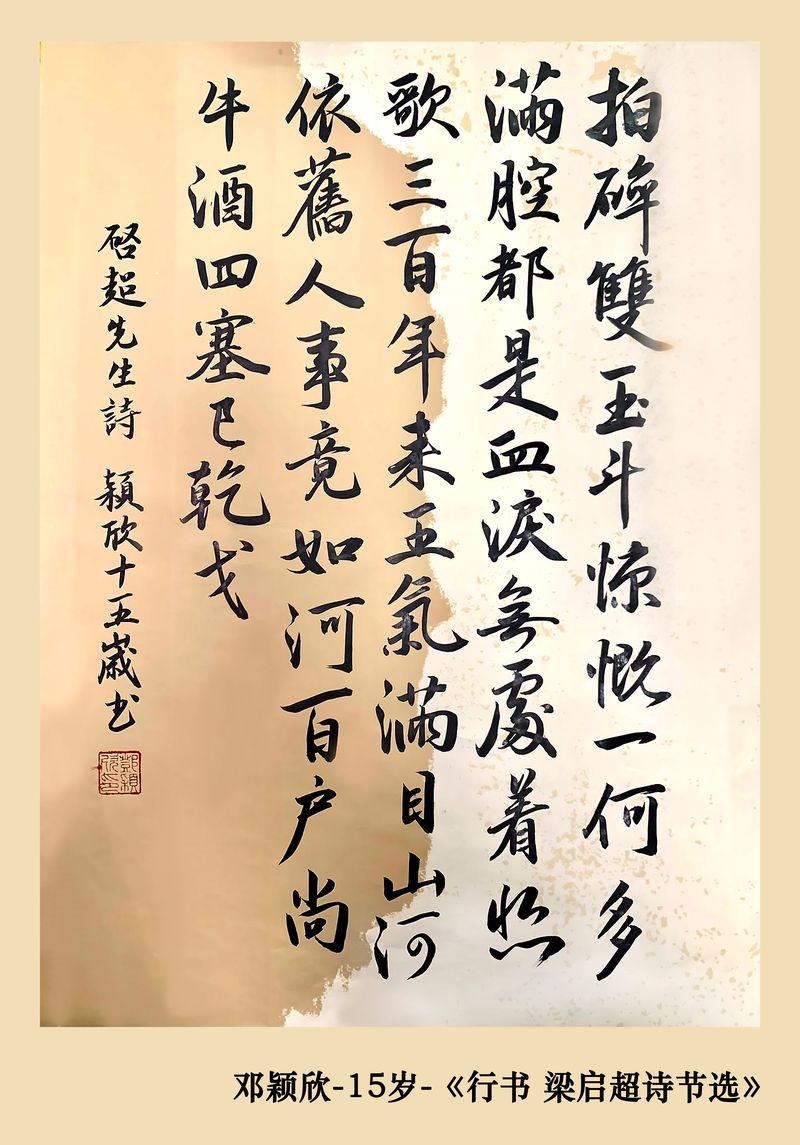 拍碎雙玉斗惊慨一何多
滿腔都是血淚無處着悲
歌三百年来王氣滿目山河
依舊人事竟如河百户尚
牛酒四塞已乾戈
啓超先生詩 穎欣十五歲书
鄧穎欣印
邓颖欣-15岁-《行书 梁启超诗节选》